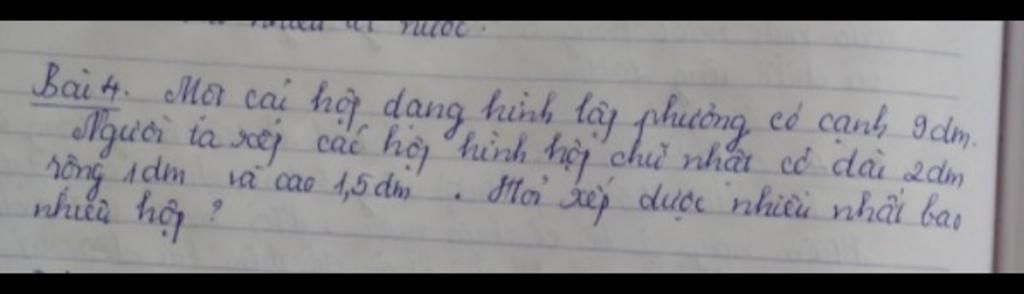 nhiêu lít nước.
Bài 4. Một cái hộp dạng hình lập phương có cạnh 9dm.
Người ta xếp các hộp hình hộp chữ nhật có dài 2dm
rộng 1dm và cao 1,5dm. Hỏi xếp được nhiều nhất bao
nhiêu hộp?